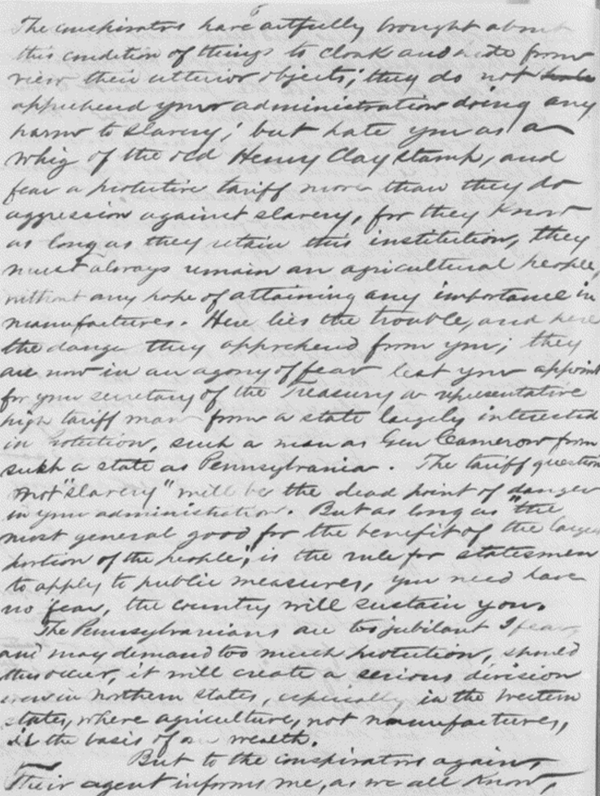 6
The conspirators have artfully brought about
this condition of things to cloak and hide from
view their ulterior objects; they do not
apprehend your administration doing any
harm to slavery, but hate you as a
whig of the old Henry Clay stamp, and
fear a protective tariff more than they do
aggression against slavery, for they know
as long as they retain this institution, they
must always remain an agricultural people,
without any hope of attaining any importance in
manufactures. Here lies the trouble, and here
the danger they apprehend from you; they
are now in an agony of fear lest you appoint
for your secretary of the Treasury a representative
high tariff man from a state largely interested
in protection, such a man as Gen Cameron from
such a state as Pennsylvania. The tariff question
not "slavery" will be the dead point of danger
in your administration. But as long as "the
most general good for the benefit of the largest
portion of the people", is the rule for statesmen
to apply to public measures, you need have
no fear, the country will sustain you.
The Pennsylvanians are too jubilant I fear,
and may demand too much protection, should
this occur, it will create a serious division
even in northern states, especially in the western
states, where agriculture, not manufactures,
is the basis of our wealth.
But to the conspirators again,
Their agent informs me, as we all know,